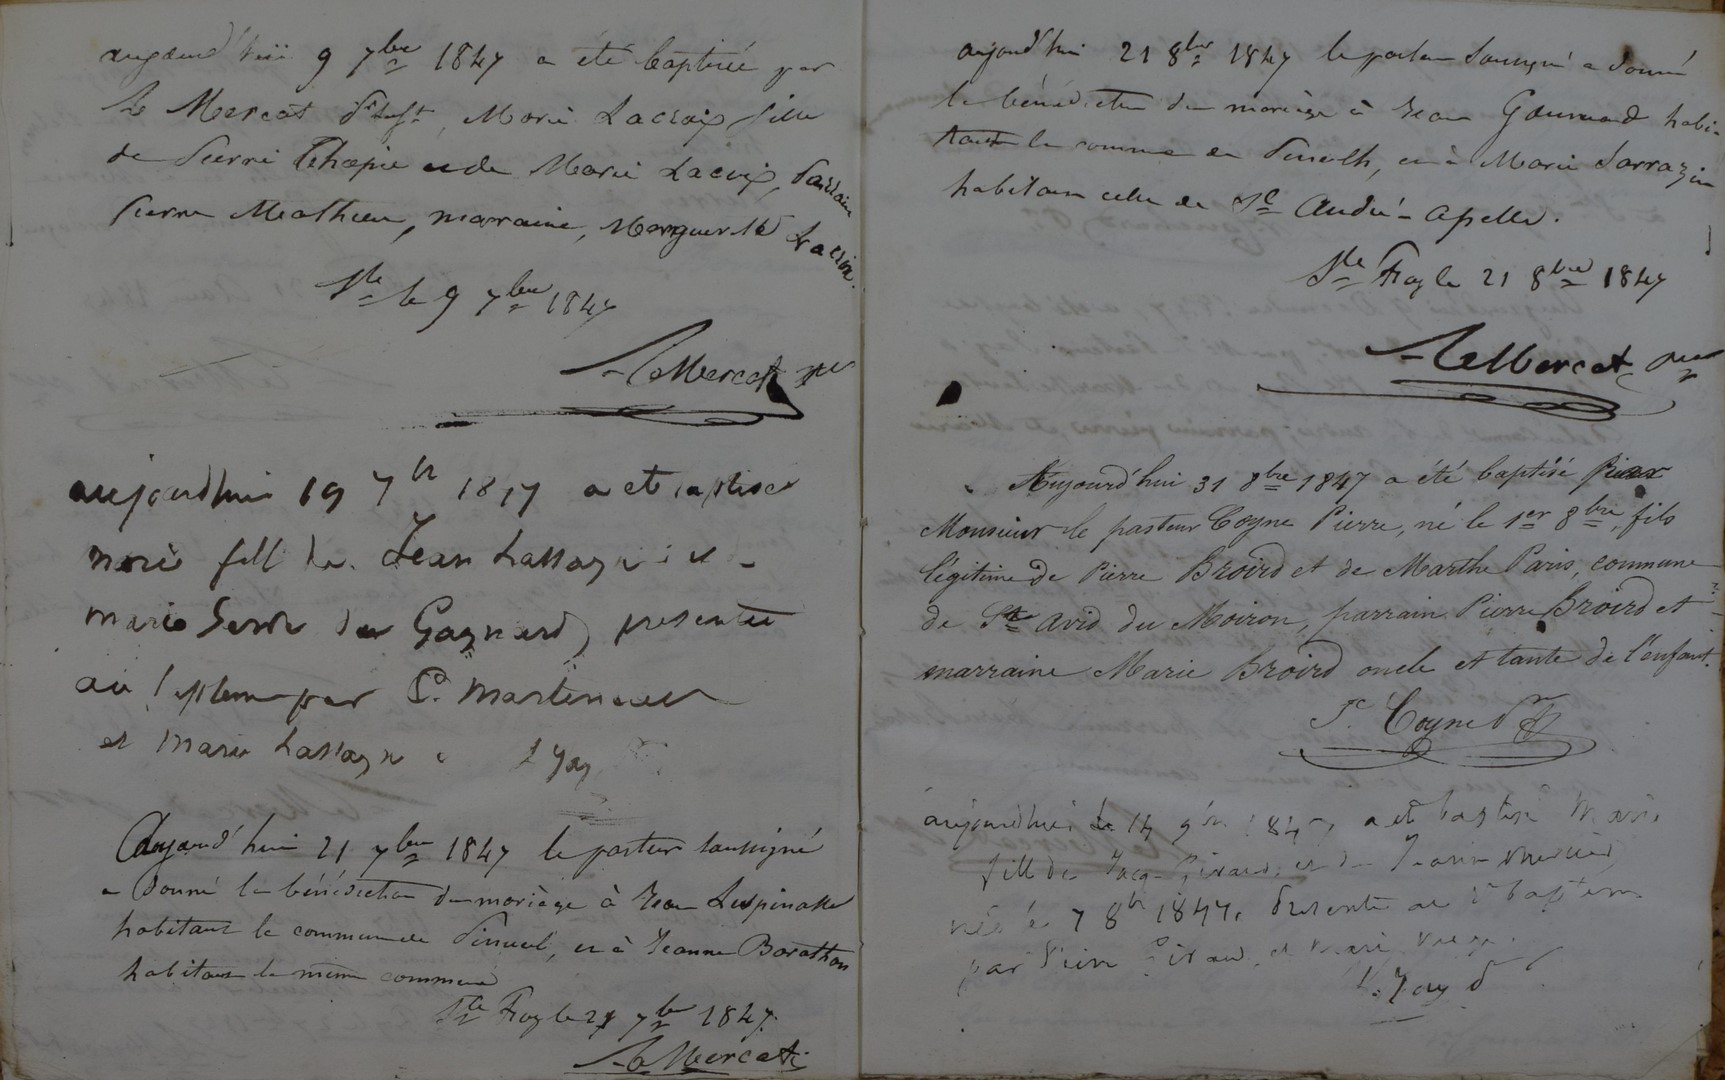 aujourd'hui 9 7bre 1847 a été baptisée par
Le Mercat, Marie Lacroix fille
de Pierre et de Marie Lacroix, Parrain
Pierre Mathieu, marraine, Marguerite Lacroix.
Ste le 9 7bre 1847
Le Mercat
aujourdhui 19 7br 1847 a ete
marie fill de Jean Lassagne et
marie du Gagnard, presentée
au par P. Martineau
et Marie Lassagne
Aujourd'hui 21 7bre 1847 le pasteur soussigné
a donné la bénédiction du mariage à Jean Lespinasse
habitant la commune de Pineuil, et à Jeanne Barathon
habitant la même commune
Ste Foy le 21 7bre 1847.
Le Mercat
aujourd'hui 21 8bre 1847 le pasteur soussigné a donné
la bénédiction du mariage à Jean habi-
tant la commune de et à Marie Sarrazin
habitant celle de St André-Apelle.
Ste Foy le 21 8bre 1847
Le Mercat
Aujourd'hui 31 8bre 1847 a été baptisé par
Monsieur le pasteur Coyne Pierre, né le 1er 8bre, fils
légitime de Pierre Broird et de Marthe Paris, commune
de St avid du Moiron, parrain Pierre Broird et
marraine Marie Broird oncle et tante de l'enfant.
P. Coyne
aujourdhui le 14 a et baptisé Marie
fill de Giraud, et de
née le 7 8br 1847. Presenté au bapteme
par Pierre Giraud et Marie